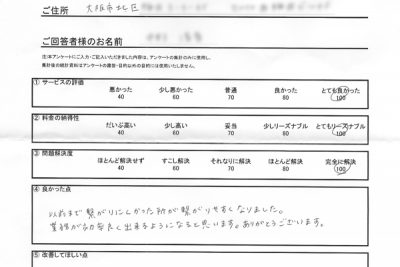 ご住所 大阪市北区
ご回答者様のお名前
注)本アンケートにご入力・ご記入いただきました内容は、アンケートの集計のみに使用し、
集計後の統計資料はアンケートの趣旨・目的以外の目的には使用いたしません。
① サービスの評価
悪かった 少し悪かった 普通 良かった とても良かった
40 60 70 80 100
② 料金の納得性
だいぶ高い 少し高い 妥当 少しリーズナブル とてもリーズナブル
40 60 70 80 100
③ 問題解決度
ほとんど解決せず すこし解決 それなりに解決 ほとんど解決 完全に解決
40 60 70 80 100
④ 良かった点
以前まで繋がりにくかった所が繋がりやすくなりました。
業務が効率良く出来るようになると思います。ありがとうございます。
⑤ 改善してほしい点